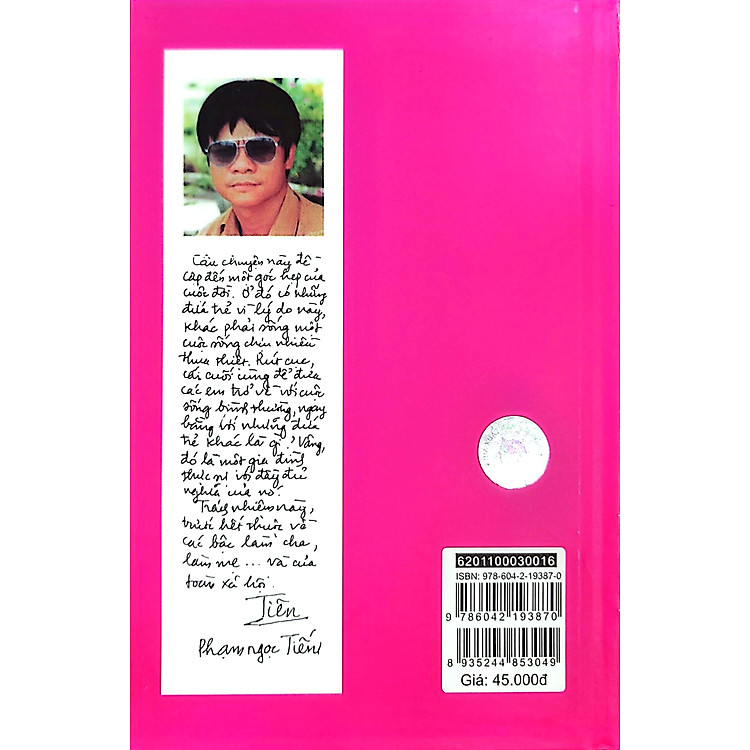 Câu chuyện này đề
cập đến một góc hẹp của
cuộc đời. Ở đó có những
đứa trẻ vì lý do này,
khác phải sống một
cuộc sống chịu nhiều
thua thiệt. Rút cục,
cái cuối cùng để đưa
các em trở về với cuộc
sống bình thường, ngay
bằng với những đứa
trẻ khác là gì? Vâng,
đó là một gia đình
thực sự với đầy đủ
nghĩa của nó.
Trách nhiệm này,
trước hết thuộc về
các bậc làm cha,
làm mẹ ... và của
toàn xã hội.
Tiến
Phạm Ngọc Tiến
6201100030016
ISBN: 978-604-2-19387-0
9 786042 193870
8 935244 853049
Giá: 45.000đ